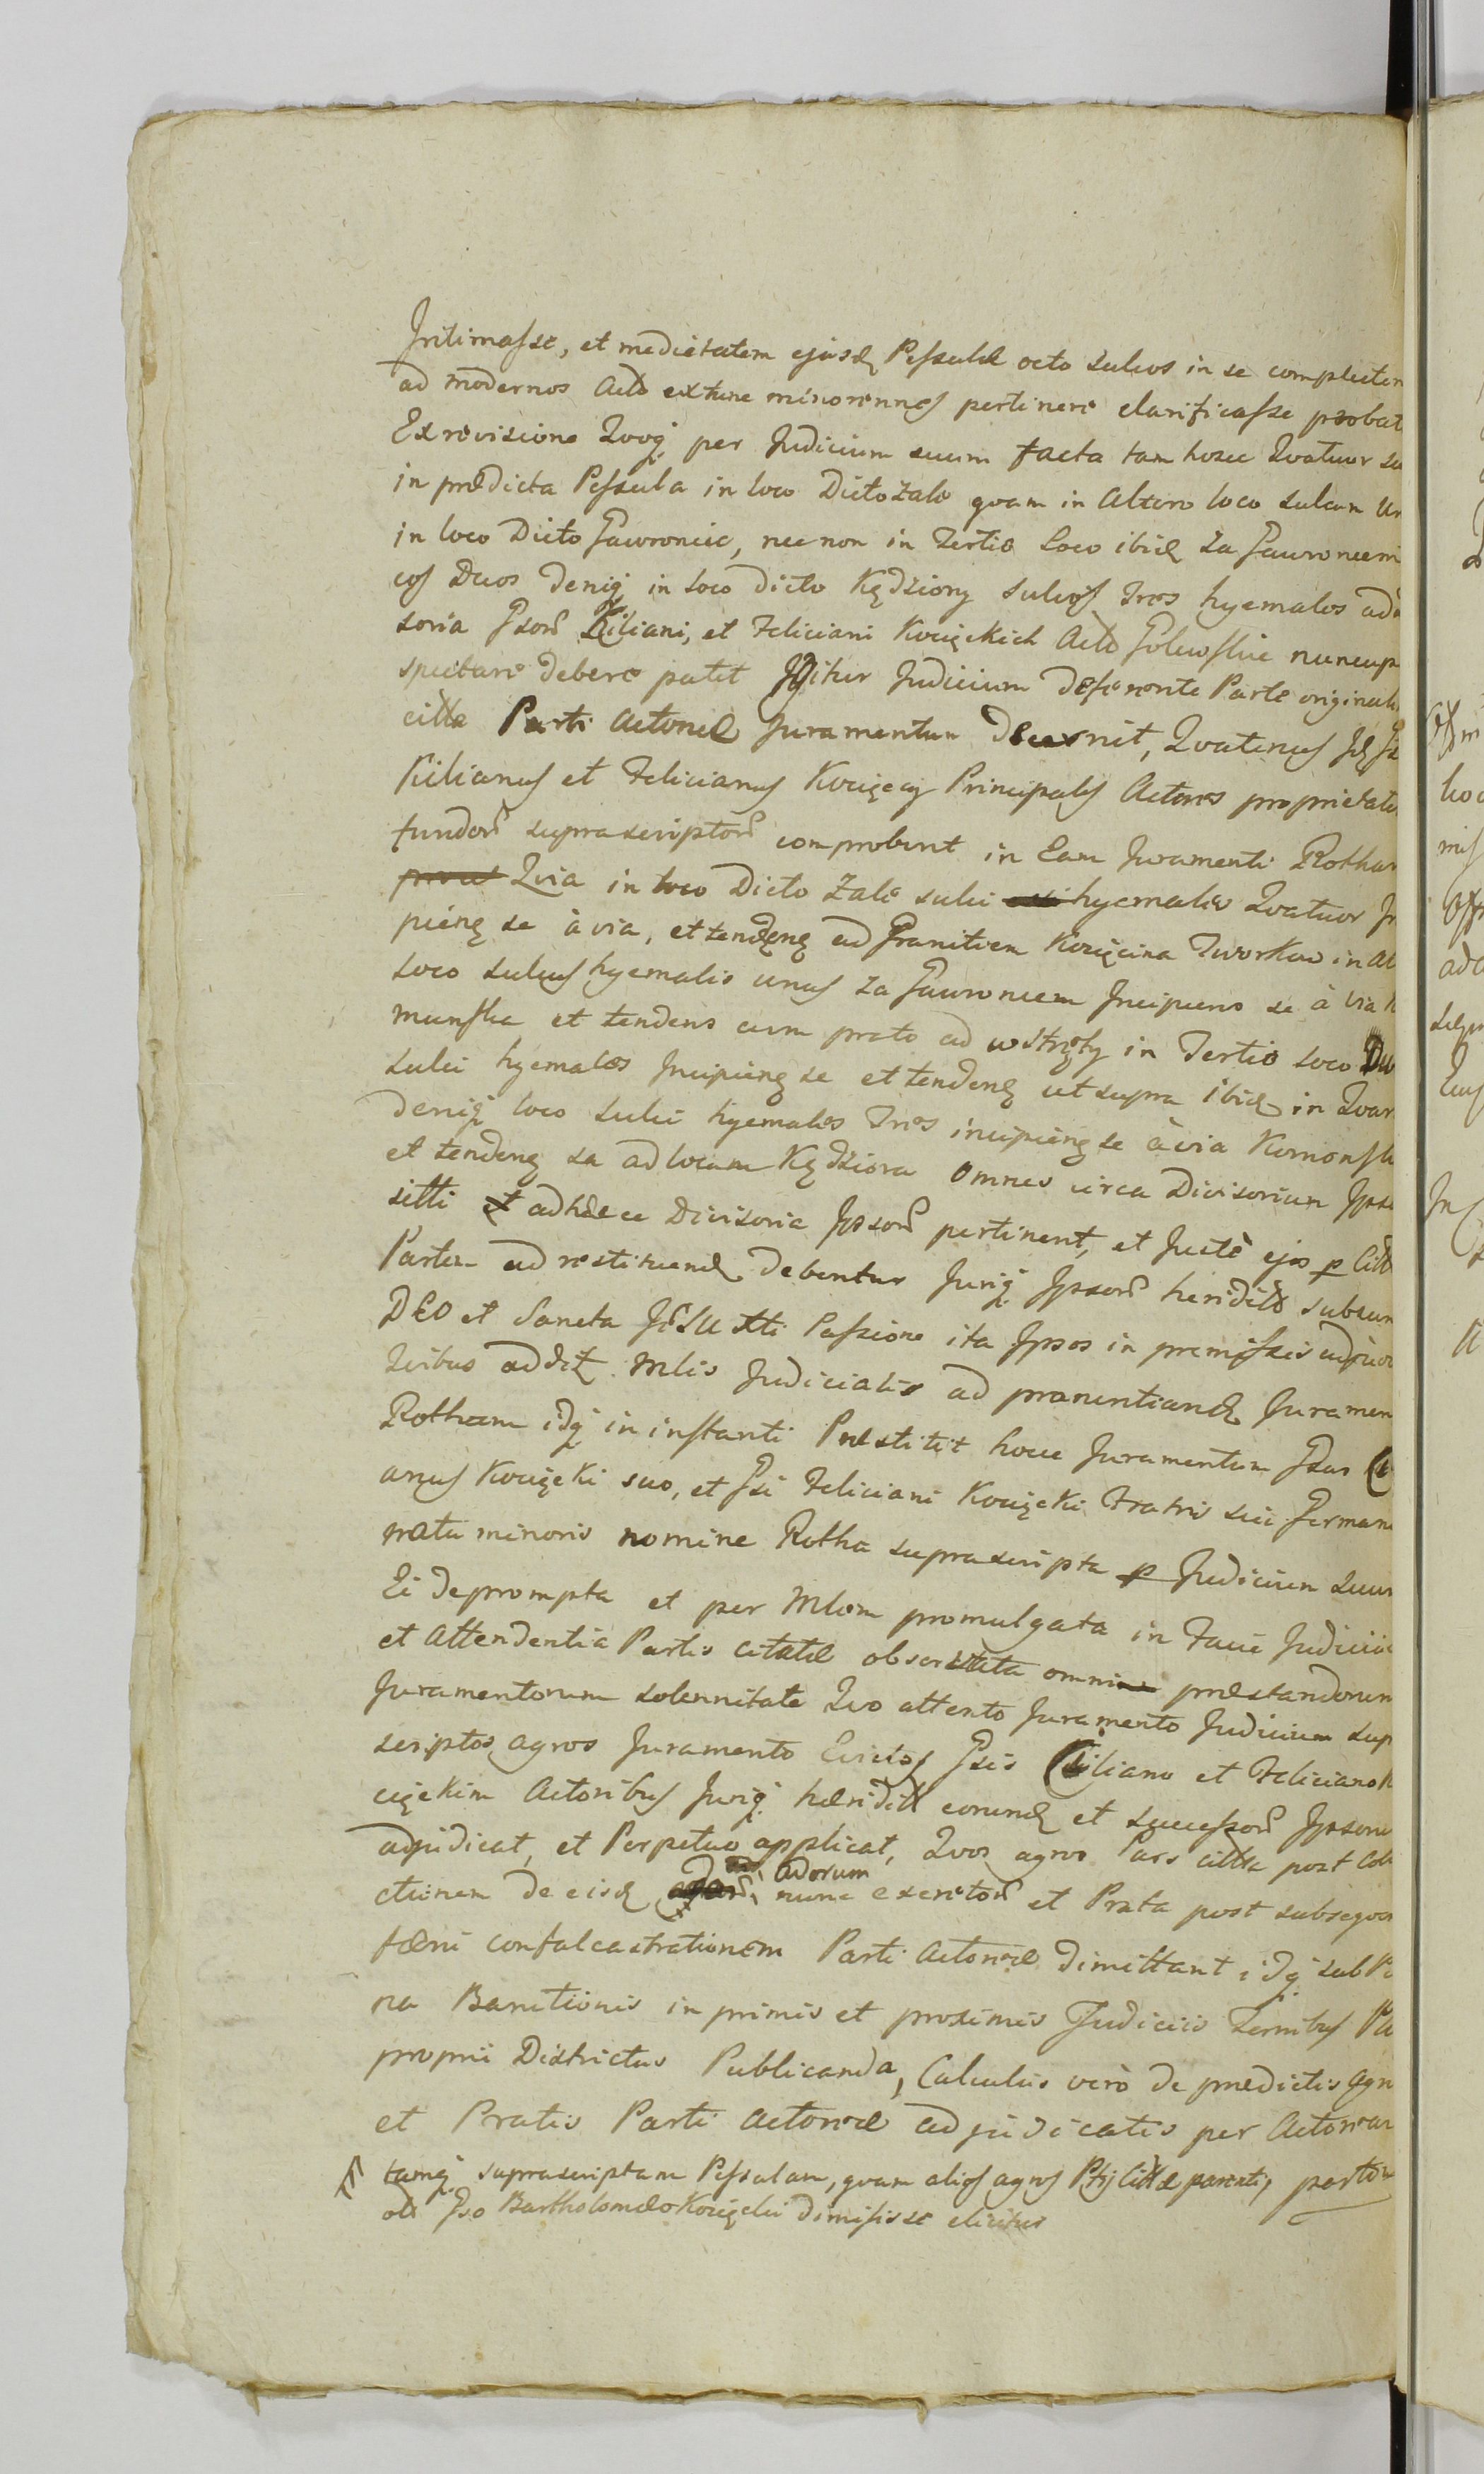 Intimasse, et medietatem ejusd Pessulæ octo sulcos in se complecten
ad modernos Actō extunc minorennes pertinere clarificasse probat
Ex revisione Qvoq per Judicium suum facta tam hocce Qvatuor su
in prædicta Pessula in loco Dicto Zale qvam in Altero loco sulcum un
in loco Dicto Gawroniec, nec non in Tertio Loco ibid za Gawroncem
cos Duos deniq in loco dicto Kędziory sulcos Tres hyemales ad
soria Gsorū Kiliani, et Feliciani Kocięckich Actō Golewskie nuncup
spectare debere patet Igitur Judicium deferente Parte originali
cittæ Parti Actoreæ Juramentum decernit, Qvatenus Jd Gs
Kilianus et Felicianus Kocięccy Principales Actores proprietate
fundorū suprascriptorū comprobent in Eam Juramenti Rotham
prout Qvia in loco Dicto Zale sulci hyemales Qvatuor In
pieng se à via, et tendeng ad Granitiem Kocięcina Tworkow in al
loco sulcus hyemalis unus za Gawroncem Incipiens se à via K
munska et tendens cum prato ad wstręty in Tertio loco Duo
sulci hyemales Incipieng se et tendeng ut supra ibid in Qvar
deniq loco sulci hyemales Tres incipieng se à via Komonsk
et tendeng se ad locum Kędziora omnes circa Divisorium Ipso
sitti et ad hæcce Divisoria Ipsorū pertinent, et Justè ejos p Citt
Partem ad restituend debentur Juriq Ipsorū heridittō subsun
DEO et Sancta JESU Xtti Passione ita Ipsos in premissis adjuva
Qvibus addit Mlis Judicialis ad pronuntiand Juramen
Rotham idq in instanti Præstitit hocce Juramentum Gsus
anus Kocięcki suo, et Gsi Feliciani Kocięcki Fratris sui German
natu minoris nomine Rotha suprascripta p Judicium suum
Ei deprompta et per Mlem promulgata in Facie Judicii
et Attendentia Partis citatæ observata omni præstandorum
Juramentorum solennitate Qvo attento Juramento Judicium sup
scriptos agros Juramento Evictos Gsis Kiliano et Feliciano K
cięckim Actoribus Juriq hæridittō eorund et successorū Ipsoru
adjudicat, et Perpetuo applicat, Qvos agros Pars cittta post Coll
ctionem de eisd adorum nunc exeretorū et Prata post subseqve
fæni confalcastrationem Parti Actoreæ dimittant idq sub Pœ
na Banitionis in primis et proximis Judiciis Terribus Pa
proprii Districtus Publicanda, Calculus verò de prædictis agr
et Pratis Parti Actoreæ adjudicatis per Actoream
tamq suprascriptam Pessulam, qvam alios agros Ptij Cittæ parentis partem
olī Gso Bartholomæo Kocięcki dimisisse elicitur